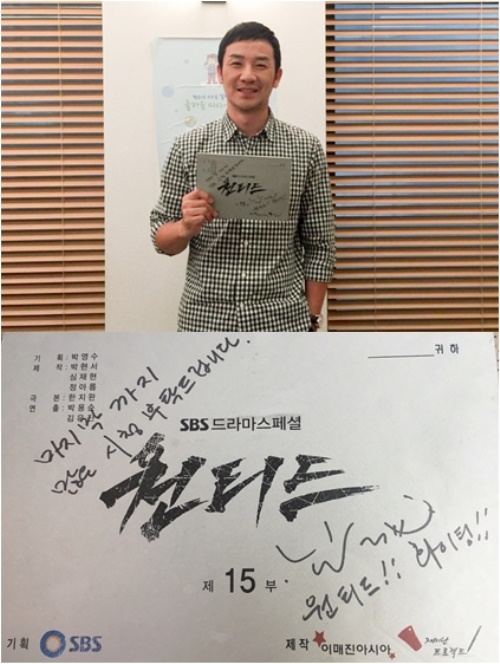 원티드
귀 하
기 획 : 박 영 수
제 작 : 박 현 서
심 재 현
정 아 름
극 본 : 한 지 완
연 출 : 박 용 순
마지막 까지
많은 시청 부탁드립니다.
SBS 드라마스페셜
원티드
제 15 부
원티드!! 화이팅!!
기획 SBS
제작 이매진아시아
프로젝트